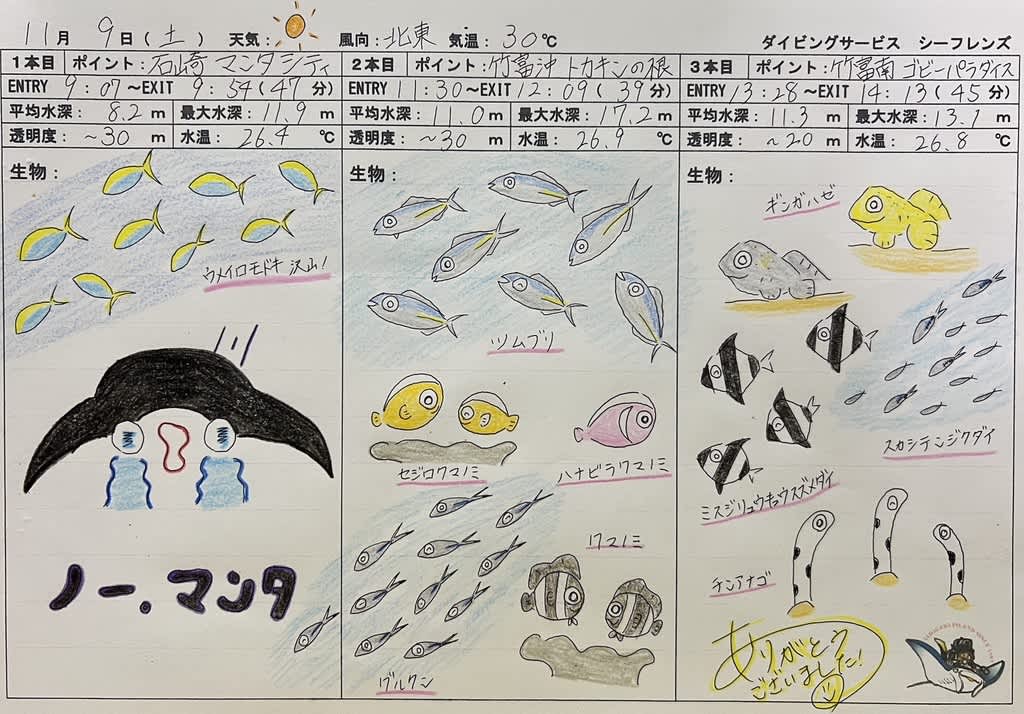 11月 9日(土) 天気: 風向:北東 気温:30℃
ダイビングサービス シーフレンズ
1本目 ポイント:石崎 マンタシティ
ENTRY 9:07~EXIT 9:54(47分)
平均水深: 8.2 m 最大水深: 11.9 m
透明度: ~30 m 水温: 26.4 ℃
生物:
ウメイロモドキ 沢山!
ノー.マンタ
2本目 ポイント:竹富沖 トカキンの根
ENTRY 11:30~EXIT 12:09(39分)
平均水深: 11.0 m 最大水深: 17.2 m
透明度: ~30 m 水温: 26.9 ℃
生物:
ツムブリ
セジロクマノミ
ハナビラクマノミ
クマノミ
グルクン
3本目 ポイント:竹富南 ゴビーパラダイス
ENTRY 13:28~EXIT 14:13(45分)
平均水深: 11.3 m 最大水深: 13.1 m
透明度: ~20 m 水温: 26.8 ℃
生物:
ギンガハゼ
スカシテンジクダイ
ミスジリュウキュウスズメダイ
チンアナゴ
ありがとう
ございました!